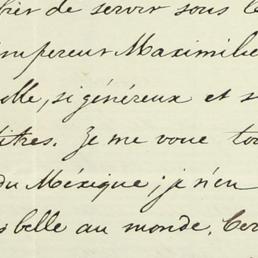 de servir sous le
Empereur Maximilie
si généreux et s
titres. Je me voue tou
du Méxique; je n'en
belle au monde. Cer